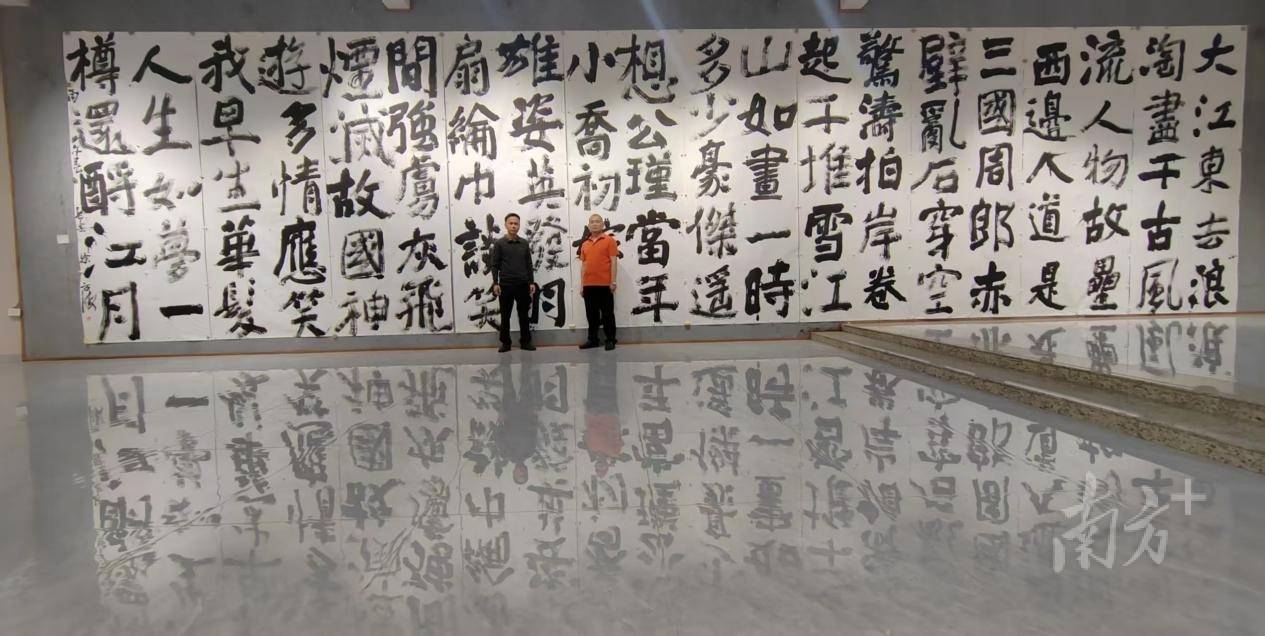 大江東去浪
淘盡千古風
流人物故壘
西邊人道是
三國周郎赤
壁亂石穿空
驚濤拍岸卷
起千堆雪江
山如畫一時
多少豪傑遥
想公瑾當年
小喬初
雄姿英發
扇綸巾談笑
間強虜灰飛
煙滅故國神
遊多情應笑
我早生華髮
人生如夢一
樽還酹江月
南方+